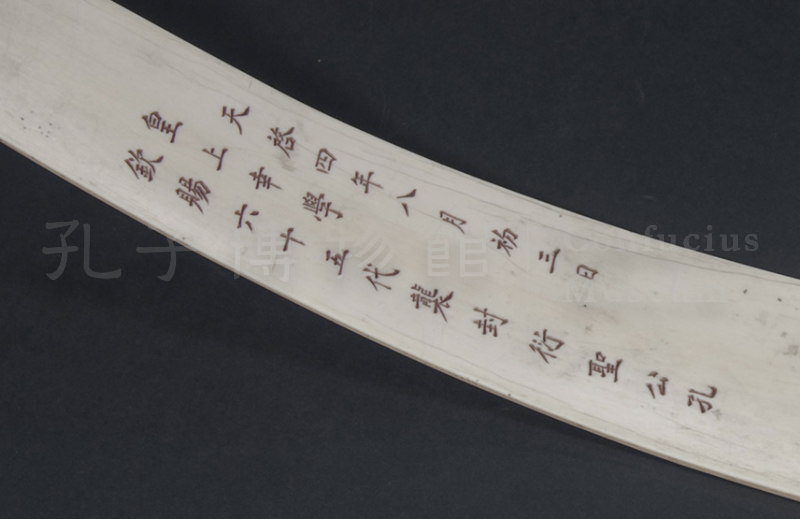 天啓四年八月初三日
皇上幸學
欽賜六十五代襲封衍聖公孔
孔子博物館
Confucius
Museum